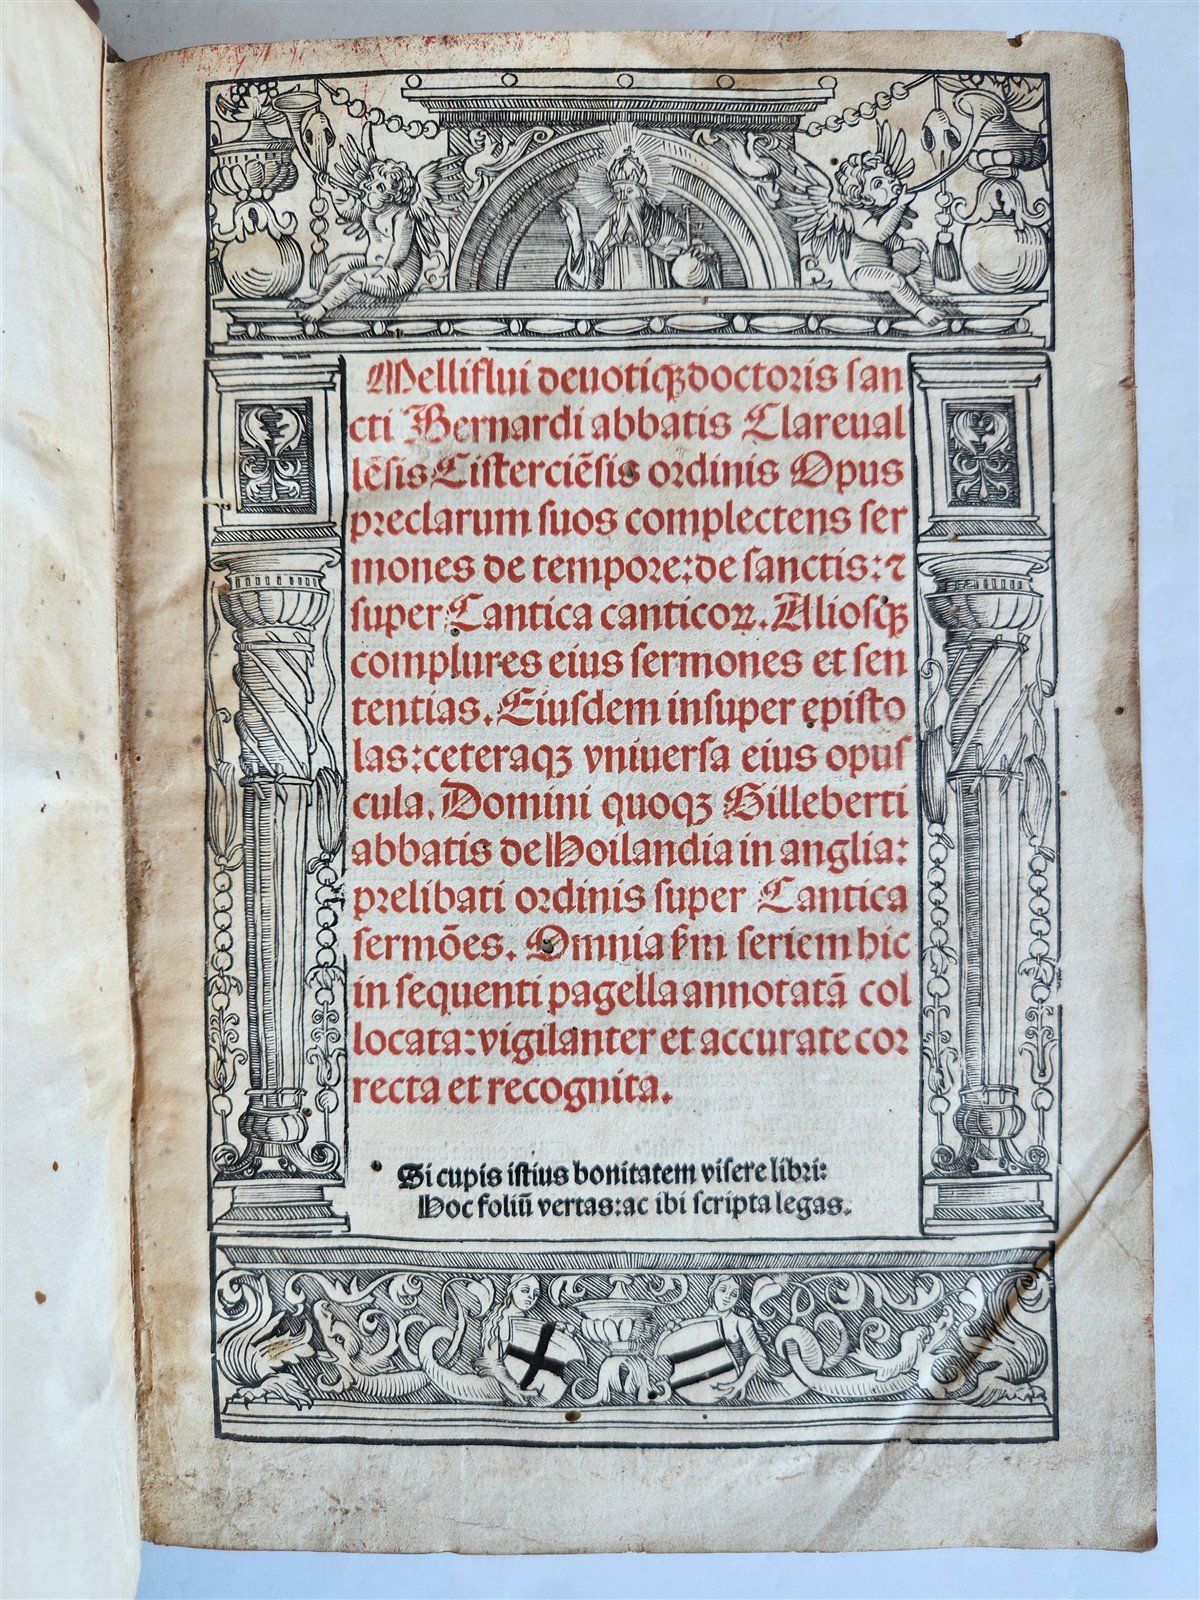 Melliflui deuotiqꝫ doctoris ſan
cti Bernardi abbatis Clareual
lēſis Ciſterciēſis ordinis Opus
preclarum ſuos complectens ſer
mones de tempore: de ſanctis: ⁊
ſuper Cantica canticoꝝ. Alioſqꝫ
complures eius ſermones et ſen
tentias. Eiuſdem inſuper epiſto
las: ceteraqꝫ vniuerſa eius opuſ
cula. Domini quoqꝫ Gilleberti
abbatis de Hoilandia in anglia:
prelibati ordinis ſuper Cantica
ſermões. Omnia ẜm ſeriem hic
in ſequenti pagella annotatā col
locata: vigilanter et accurate cor
recta et recognita.
Si cupis iſtius bonitatem viſere libri:
Hoc foliū vertas: ac ibi ſcripta legas.